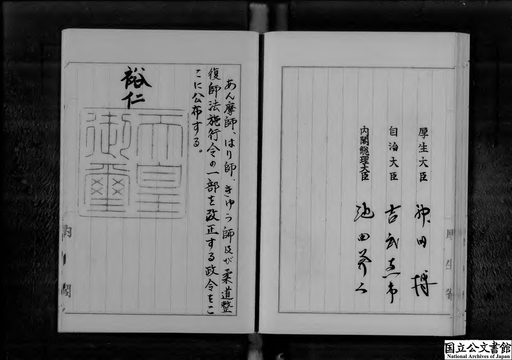 あん摩師、はり師、きゆう師及び柔道整
復師法施行令の一部を改正する政令をこ
こに公布する。
裕仁
天皇
御璽
内閣
厚生大臣 神田博
自治大臣 吉武恵市
内閣総理大臣 池田勇人
国立公文書館
National Archives of Japan